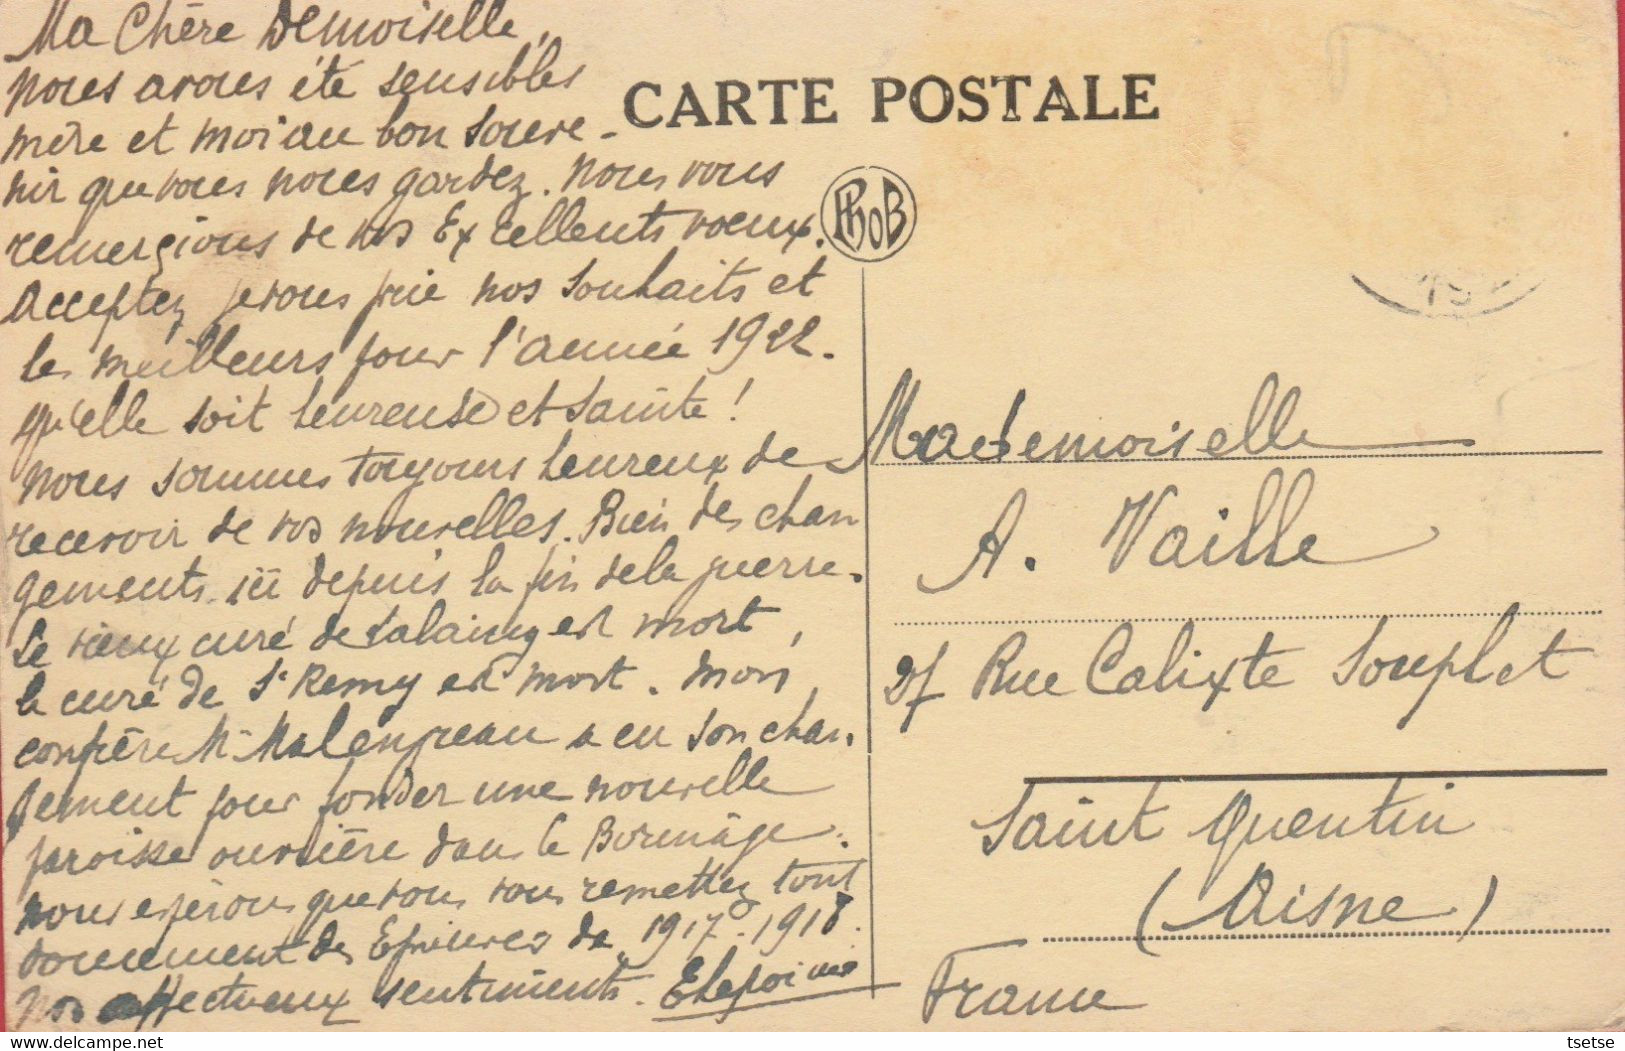 Ma Chère Demoiselle,
nous avons été sensibles
mère et moi au bon souve-
nir que vous nous gardez. nous vous
remercions de vos Excellents voeux.
Acceptez je vous prie nos souhaits et
les meilleurs pour l'année 1922.
qu'elle soit heureuse et sainte!
nous sommes toujours heureux de
recevoir de vos nouvelles. Bien des chan
gements ici depuis la fin de la guerre.
Le vieux curé de est mort,
le curé de St Remy est mort. mon
confrère Mr a eu son chan.
gement pour fonder une nouvelle
paroisse ouvrière dans le Borinage.
nous espérons que vous vous remettez tout
doucement des Epreuves de 1917-1918.
Nos affectueux sentiments.
CARTE POSTALE
PhoB
19
Mademoiselle
A. Vaille
27 Rue Calixte Souplet
Saint Quentin
(Aisne)
France
delcampe.net
tsetse